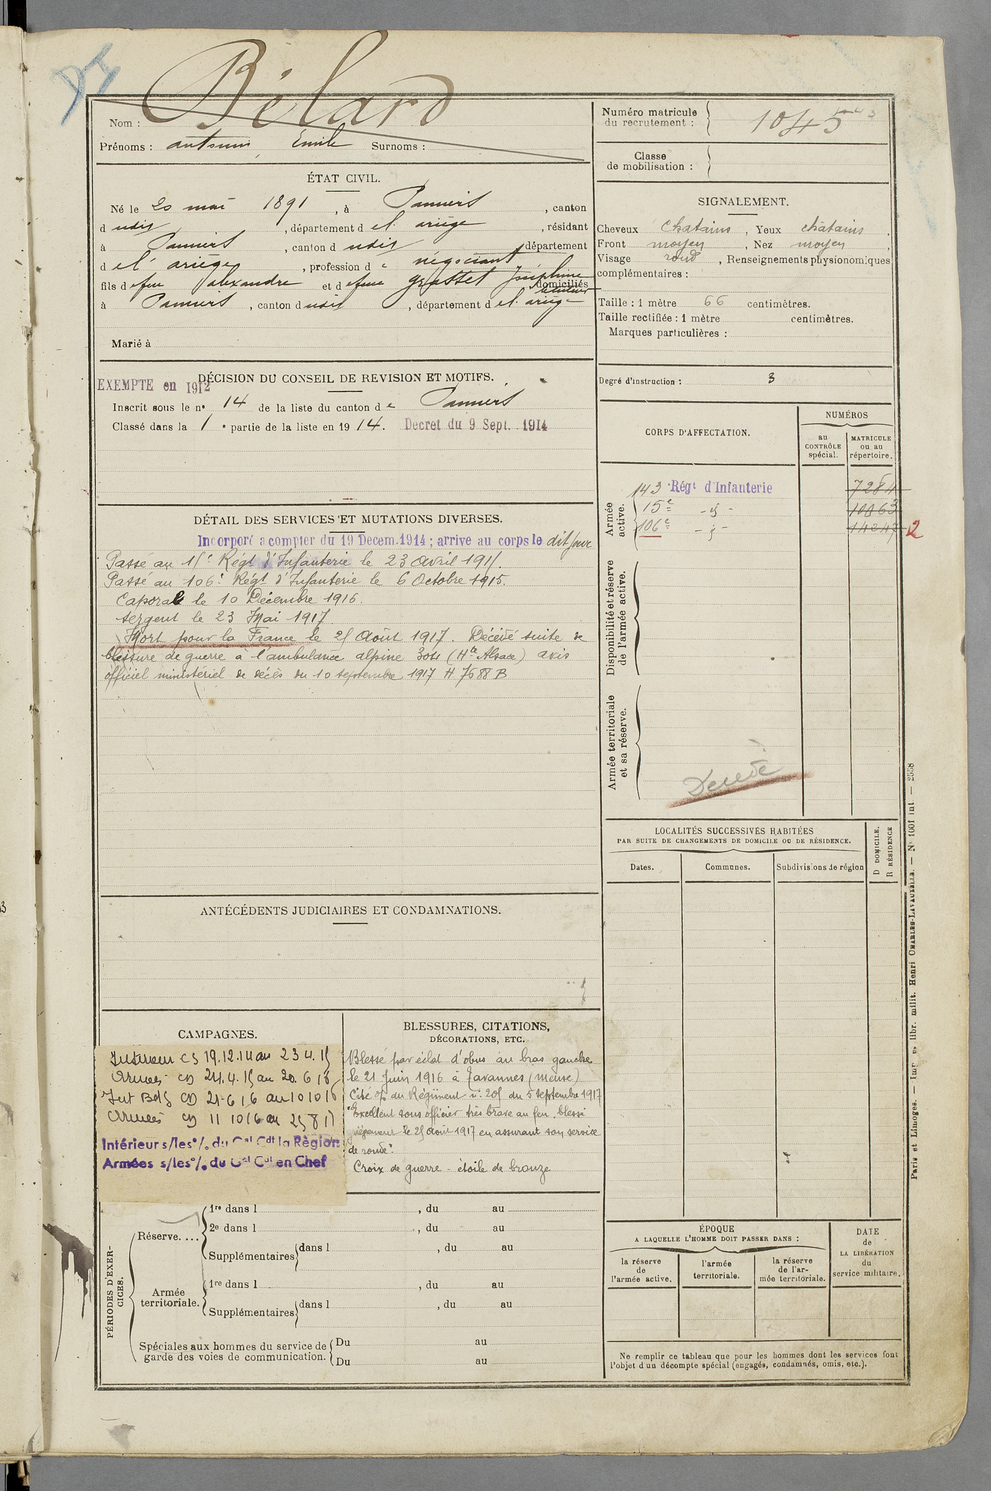 Bélard
Nom :
Prénoms : antonin, Emile Surnoms :
Numéro matricule
du recrutement : 1045
Classe
de mobilisation :
ÉTAT CIVIL.
Né le 20 mai 1891, à Pamiers, canton
d udit, département d el ariège, résidant
à Pamiers, canton d udit, département
d el ariège, profession d e négociant
fils d e feu alexandre et d e feue grasset Joséphine domiciliés
à Pamiers, canton d udit, département d el ariège
Marié à
SIGNALEMENT.
Cheveux chatains, Yeux châtains
Front moyen, Nez moyen
Visage rond, Renseignements physionomiques
complémentaires :
Taille : 1 mètre 66 centimètres.
Taille rectifiée : 1 mètre centimètres.
Marques particulières :
Degré d'instruction : 3
DÉCISION DU CONSEIL DE REVISION ET MOTIFS.
EXEMPTE en 1912
Inscrit sous le n° 14 de la liste du canton d e Pamiers
Classé dans la 1e partie de la liste en 1914. Decret du 9 Sept. 1914
CORPS D'AFFECTATION.
NUMÉROS
au
CONTRÔLE
spécial.
MATRICULE
ou au
répertoire.
Armée
active.
143e Régt d'Infanterie 7284
15e -d°- 10963
106e -d°- 14847
Disponibilité et réserve
de l'armée active.
Armée territoriale
et sa réserve.
Décédé
DÉTAIL DES SERVICES ET MUTATIONS DIVERSES.
Incorporé a compter du 19 Decem. 1914 ; arrivé au corps le dit jour
Passé au 15e Régt d'Infanterie le 23 avril 1915.
Passé au 106e Régt d'Infanterie le 6 Octobre 1915.
Caporal le 10 Décembre 1916.
Sergent le 23 Mai 1917.
Mort pour la France le 25 Août 1917. Décédé suite de
blessure de guerre à l'ambulance alpine 304 (Hte Alsace) avis
officiel ministériel de décès du 10 septembre 1917 H 7588 B
LOCALITÉS SUCCESSIVES HABITÉES
PAR SUITE DE CHANGEMENTS DE DOMICILE OU DE RÉSIDENCE.
Dates.
Communes.
Subdivisions de région
D DOMICILE.
R RÉSIDENCE
ANTÉCÉDENTS JUDICIAIRES ET CONDAMNATIONS.
CAMPAGNES.
Intérieur CS 19.12.14 au 23 4.15
Armées CD 24.4.15 au 20.6.16
Int Bles CD 21-6 16 au 10 10 16
Armées CD 11 10 16 au 25 8 17
Intérieur s/les % du Gal Cdt la Région
Armées s/les % du Gal Cdt en Chef
BLESSURES, CITATIONS,
DÉCORATIONS, ETC.
Blessé par éclat d'obus au bras gauche
le 21 Juin 1916 à Tavannes (Meuse)
Cité o/ du Régiment n° 205 du 5 septembre 1917
"Excellent sous officier très brave au feu, blessé
le 25 Août 1917 en assurant son service
de ronde".
Croix de guerre - étoile de bronze
PÉRIODES D'EXER-
CICES.
Réserve....
1re dans l , du au
2e dans l , du au
Supplémentaires dans l , du au
Armée
territoriale.
1re dans l , du au
Supplémentaires dans l , du au
Spéciales aux hommes du service de
garde des voies de communication.
Du au
Du au
ÉPOQUE
A LAQUELLE L'HOMME DOIT PASSER DANS :
la réserve
de
l'armée active.
l'armée
territoriale.
la réserve
de l'ar-
mée territoriale.
DATE
de
LA LIBÉRATION
du
service militaire.
Ne remplir ce tableau que pour les hommes dont les services font
l'objet d'un décompte spécial (engagés, condamnés, omis, etc.).
Paris et Limoges. — Imp. et libr. milit. Henri CHARLES-LAVAUZELLE. — N° 1001 int — 2558